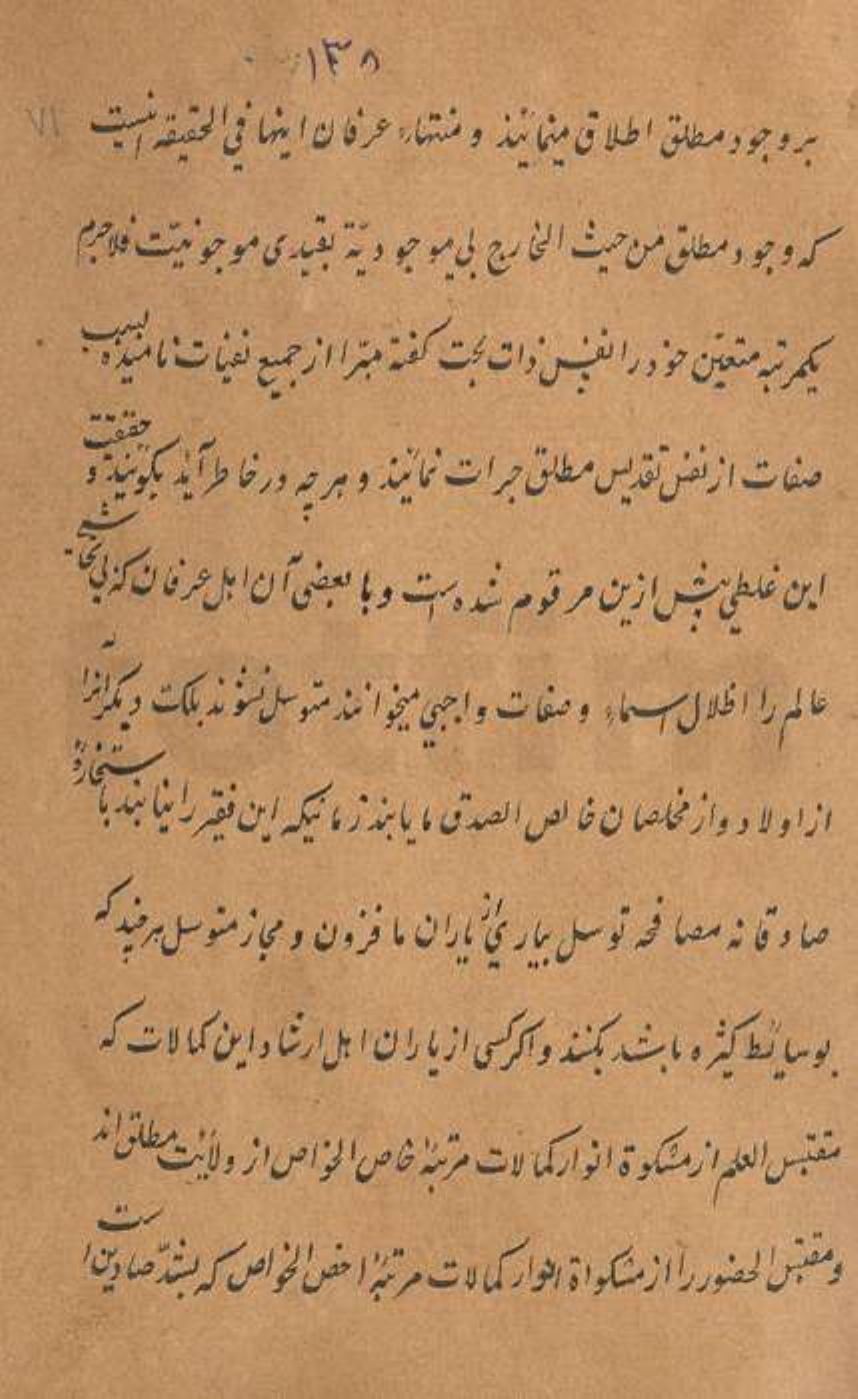 ۱۳۸
بر وجود مطلق اطلاق مینمائیند و منتهاء عرفان اینها فی الحقیقه اینست
که وجود مطلق من حیث الخارج بی موجودیّة بقیدی موجود نیّت فلاجرم
یکمرتبه متعیّن خود را نفس ذات بحت گفته مبّرا از جمیع تعینات نامیده بسبب
صفات از نفس تقدیس مطلق جرات نمائیند و هر چه در خاطر آید بگوئیند و حقیقت
این غلطی پیش ازین مرقوم شده است و با بعضی آن اهل عرفان که بی تحاشی
عالم را اظلال اسماء و صفات واجبی میخوانند متوسل نشوند بلکت دیگر انرا
از اولاد و از مخلصان خالص الصدق ما یابند زمانیکه این فقیر را نیابند با ستخارهٔ
صادقانه مصافحه توسل بیاری از یاران ماذون و مجاز متوسل هر چند که
بوسائط کثیره باشد بکنند و اگر کسی از یاران اهل ارشاد این کمالات که
مقتبس العلم از مشکوة انوار کمالات مرتبهٔ خاص الخواص از ولایت مطلق اند
و مقتبس الحضور را از مشکواة انوار کمالات مرتبهٔ اخص الخواص که است